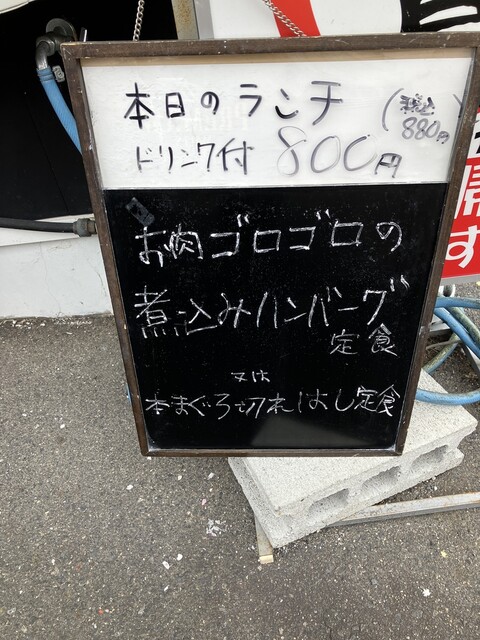 本日のランチ
(税込
880円)
ドリンク付 800円
お肉ゴロゴロの
煮込みハンバーグ
定食
又は
本まぐろ切れはし定食
す